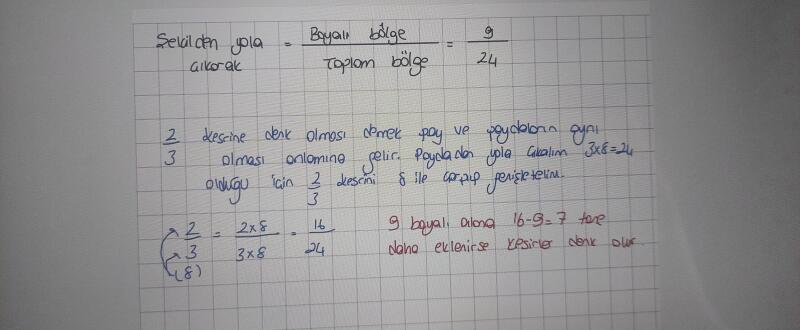 Şekilden yola çıkarak = Boyalı bölge / Toplam bölge = 9/24
2/3 kesrine denk olması demek pay ve paydaların aynı
olması anlamına gelir. Paydadan yola çıkalım 3x8=24
olduğu için 2/3 kesrini 8 ile çarpıp genişletelim.
2/3 (8) = 2x8 / 3x8 = 16/24
9 boyalı alana 16-9=7 tane
daha eklenirse kesirler denk olur.